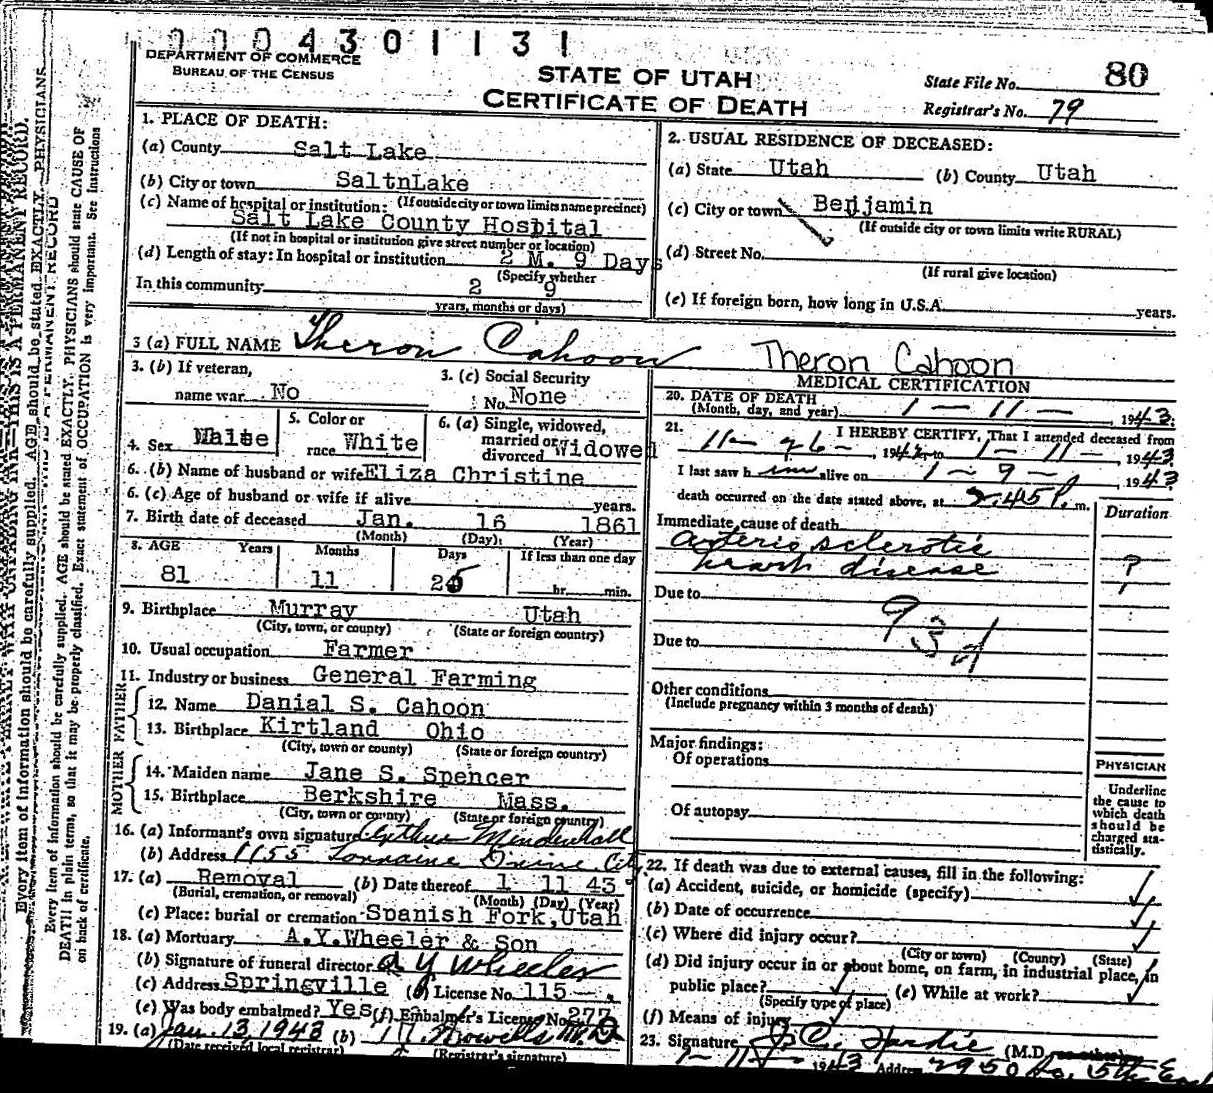 0004301131
DEPARTMENT OF COMMERCE
BUREAU OF THE CENSUS
STATE OF UTAH
CERTIFICATE OF DEATH
State File No. 80
Registrar's No. 79
1. PLACE OF DEATH:
(a) County Salt Lake
(b) City or town SaltnLake
(c) Name of hospital or institution: (If outside city or town limits name precinct)
Salt Lake County Hospital
(If not in hospital or institution give street number or location)
(d) Length of stay: In hospital or institution 2 M. 9 Days
(Specify whether
In this community 2 9
years, months or days)
2. USUAL RESIDENCE OF DECEASED:
(a) State Utah (b) County Utah
(c) City or town Benjamin
(If outside city or town limits write RURAL)
(d) Street No.
(If rural give location)
(e) If foreign born, how long in U.S.A. years.
3 (a) FULL NAME Theron Cahoon Theron Cahoon
3. (b) If veteran,
name war No
3. (c) Social Security
No. None
4. Sex Male
5. Color or
race White
6. (a) Single, widowed,
married or
divorced Widowed
6. (b) Name of husband or wife Eliza Christine
6. (c) Age of husband or wife if alive years.
7. Birth date of deceased Jan. 16 1861
(Month) (Day) (Year)
8. AGE Years Months Days If less than one day
81 11 25 hr. min.
9. Birthplace Murray Utah
(City, town, or county) (State or foreign country)
10. Usual occupation Farmer
11. Industry or business General Farming
FATHER
12. Name Danial S. Cahoon
13. Birthplace Kirtland Ohio
(City, town or county) (State or foreign country)
MOTHER
14. Maiden name Jane S. Spencer
15. Birthplace Berkshire Mass.
(City, town or county) (State or foreign country)
16. (a) Informant's own signature Mendenhall
(b) Address 1155 Lorraine Drive City
17. (a) Removal (b) Date thereof 1 11 43
(Burial, cremation, or removal) (Month) (Day) (Year)
(c) Place: burial or cremation Spanish Fork, Utah
18. (a) Mortuary A.Y. Wheeler & Son
(b) Signature of funeral director A Y Wheeler
(c) Address Springville (d) License No. 115
(e) Was body embalmed? Yes (f) Embalmer's License No. 277
19. (a) Jan. 13, 1943 (b) M.D.
(Date received local registrar) (Registrar's signature)
MEDICAL CERTIFICATION
20. DATE OF DEATH
(Month, day, and year) 1 - 11 - , 1943.
21. I HEREBY CERTIFY, That I attended deceased from
11 - 26 - , 1942, to 1 - 11 - , 1943
I last saw h im alive on 1 - 9 - , 1943
death occurred on the date stated above, at 2:45 P. m.
Duration
Immediate cause of death
arteriosclerotic
heart disease ?
Due to
93d
Due to
Other conditions
(Include pregnancy within 3 months of death)
Major findings:
Of operations
Of autopsy
PHYSICIAN
Underline
the cause to
which death
should be
charged sta-
tistically.
22. If death was due to external causes, fill in the following:
(a) Accident, suicide, or homicide (specify)
(b) Date of occurrence
(c) Where did injury occur?
(City or town) (County) (State)
(d) Did injury occur in or about home, on farm, in industrial place, in
public place? (e) While at work?
(Specify type of place)
(f) Means of injury
23. Signature J. C. Hardie (M.D. or other)
1-11- 1943 Address 2950 So. 5th East
Every item of information should be carefully supplied. AGE should be stated EXACTLY. PHYSICIANS should state CAUSE OF
DEATH in plain terms, so that it may be properly classified. Exact statement of OCCUPATION is very important. See instructions
on back of certificate.